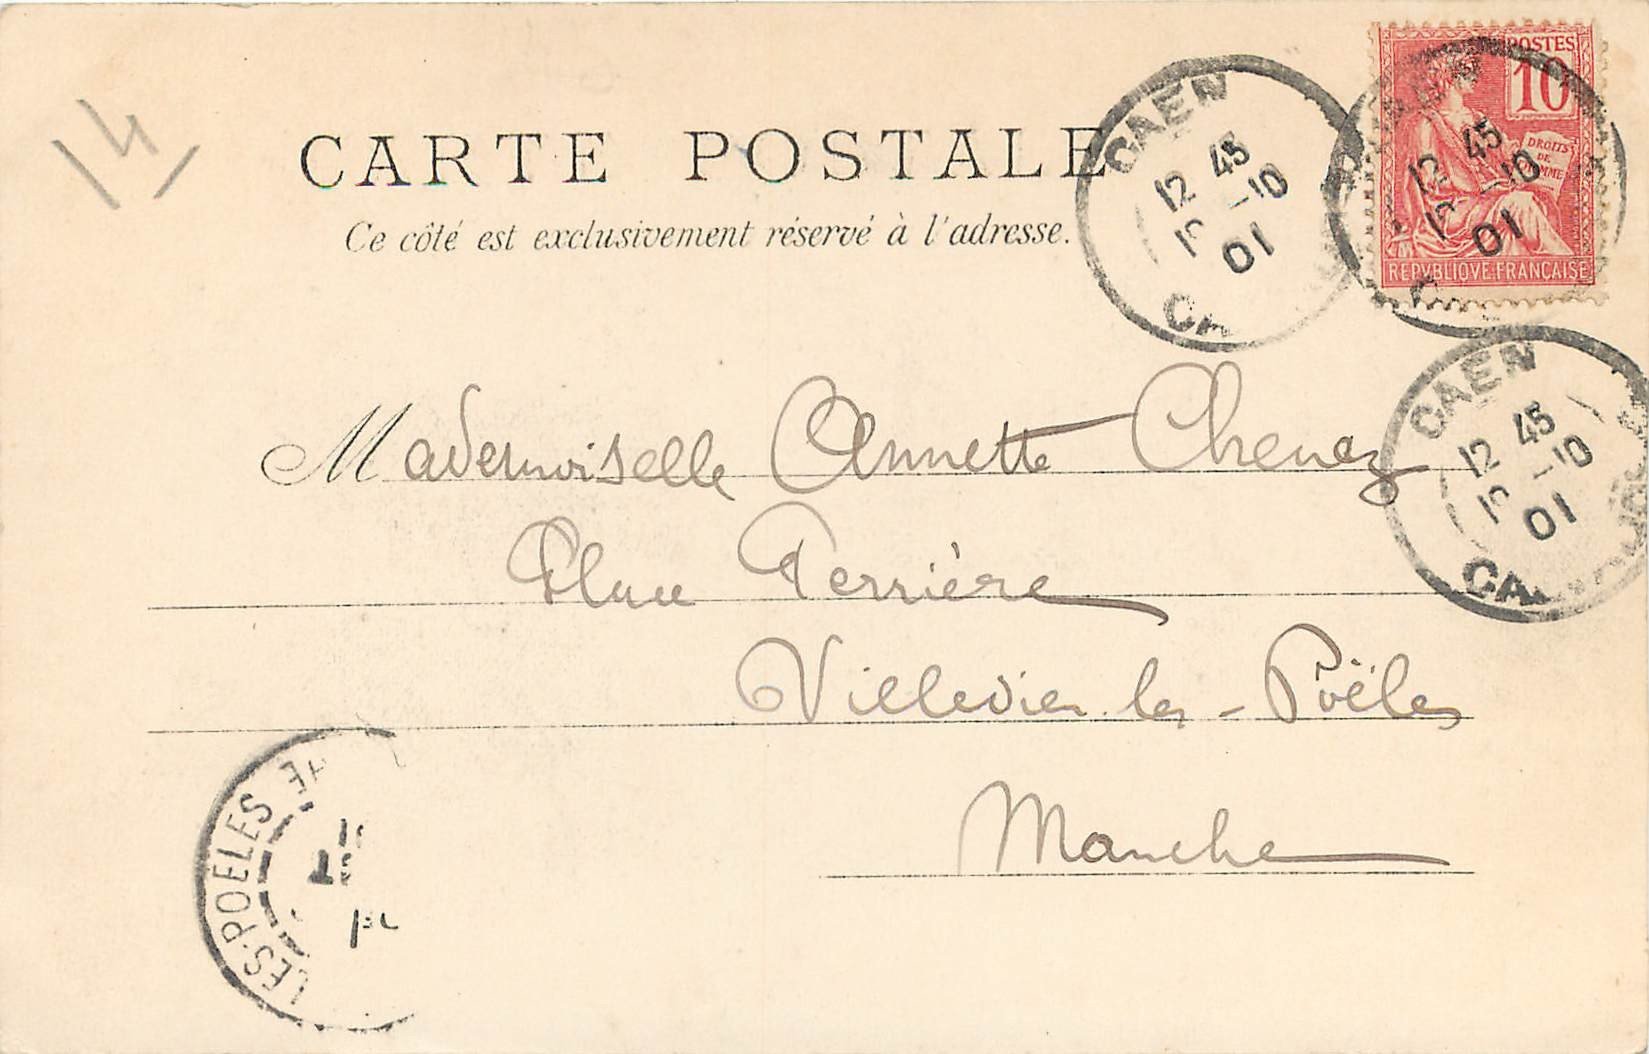 14
CARTE POSTALE
Ce côté est exclusivement réservé à l'adresse.
POSTES
10
DROITS DE
REPVBLIQVE FRANÇAISE
CAEN
12 45
-10
01
CAEN
12 45
-10
01
12 45
-10
01
Mademoiselle Annette Chenez
Place Ferrière
Villedieu les-Poëles
Manche
LES-POELES